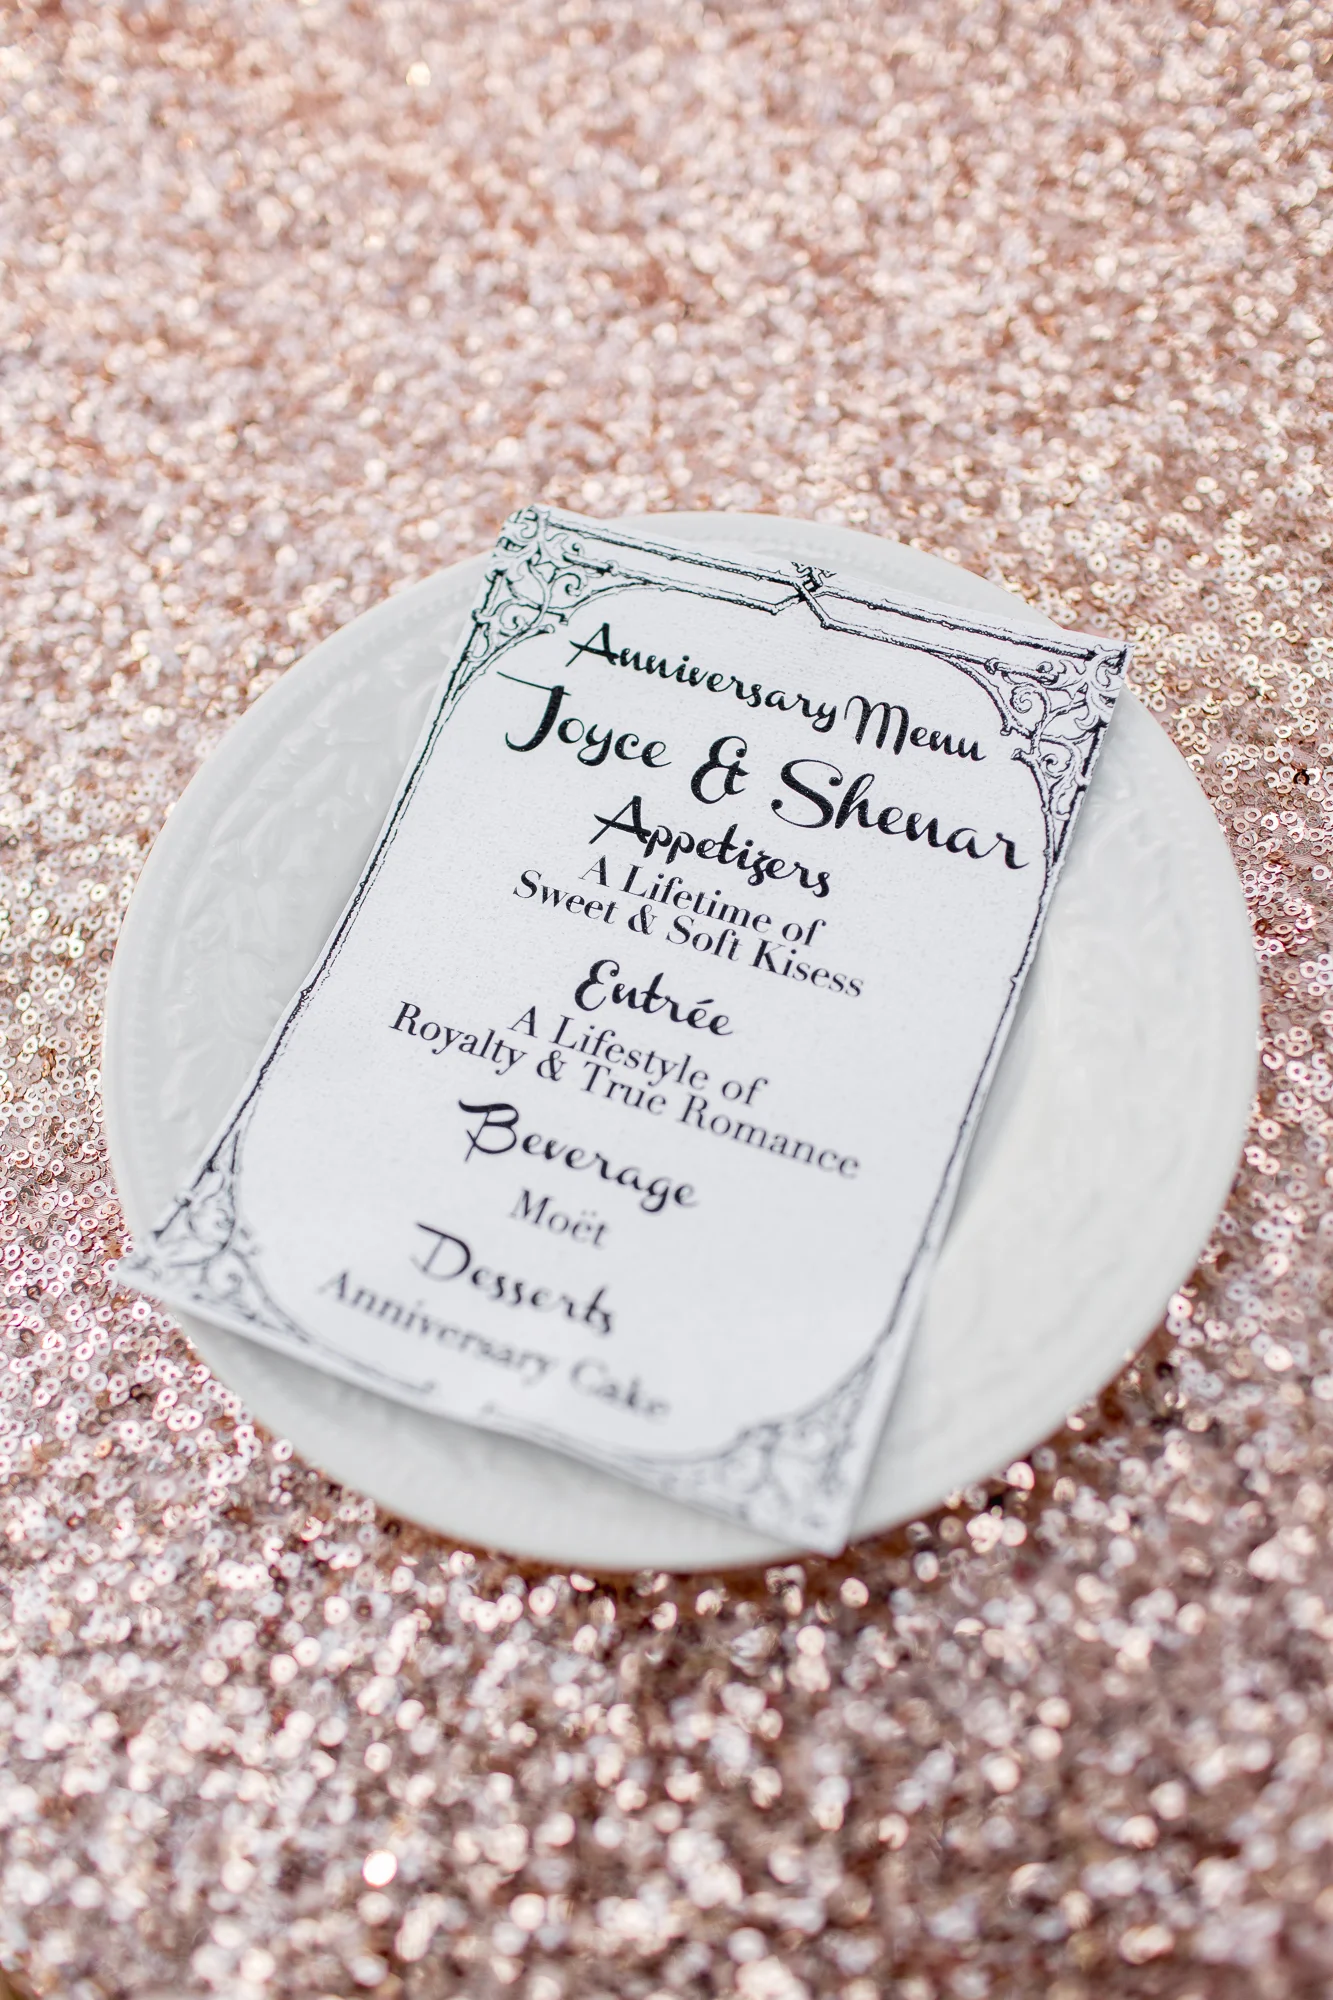 Anniversary Menu
Joyce & Shenar
Appetizers
A Lifetime of
Sweet & Soft Kisess
Entrée
A Lifestyle of
Royalty & True Romance
Beverage
Moët
Desserts
Anniversary Cake